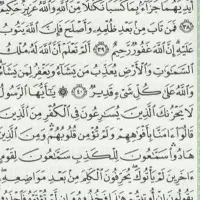 أَيْدِيَهُمَا جَزَآءًۢ بِمَا كَسَبَا نَكَٰلًا مِّنَ ٱللَّهِ وَٱللَّهُ عَزِيزٌ حَكِيمٌ
﴿٣٨﴾ فَمَن تَابَ مِنۢ بَعْدِ ظُلْمِهِۦ وَأَصْلَحَ فَإِنَّ ٱللَّهَ يَتُوبُ
عَلَيْهِ إِنَّ ٱللَّهَ غَفُورٌ رَّحِيمٌ ﴿٣٩﴾ أَلَمْ تَعْلَمْ أَنَّ ٱللَّهَ لَهُۥ مُلْكُ
ٱلسَّمَٰوَٰتِ وَٱلْأَرْضِ يُعَذِّبُ مَن يَشَآءُ وَيَغْفِرُ لِمَن يَشَآءُ
وَٱللَّهُ عَلَىٰ كُلِّ شَىْءٍ قَدِيرٌ ﴿٤٠﴾ يَٰٓأَيُّهَا ٱلرَّسُولُ
لَا يَحْزُنكَ ٱلَّذِينَ يُسَٰرِعُونَ فِى ٱلْكُفْرِ مِنَ ٱلَّذِينَ
قَالُوٓا۟ ءَامَنَّا بِأَفْوَٰهِهِمْ وَلَمْ تُؤْمِن قُلُوبُهُمْ وَمِنَ ٱلَّذِينَ
هَادُوا۟ سَمَّٰعُونَ لِلْكَذِبِ سَمَّٰعُونَ لِقَوْمٍ
ءَاخَرِينَ لَمْ يَأْتُوكَ يُحَرِّفُونَ ٱلْكَلِمَ مِنۢ بَعْدِ مَوَاضِعِهِۦ
يَقُولُونَ إِنْ أُوتِيتُمْ هَٰذَا فَخُذُوهُ وَإِن لَّمْ تُؤْتَوْهُ فَٱحْذَرُوا۟